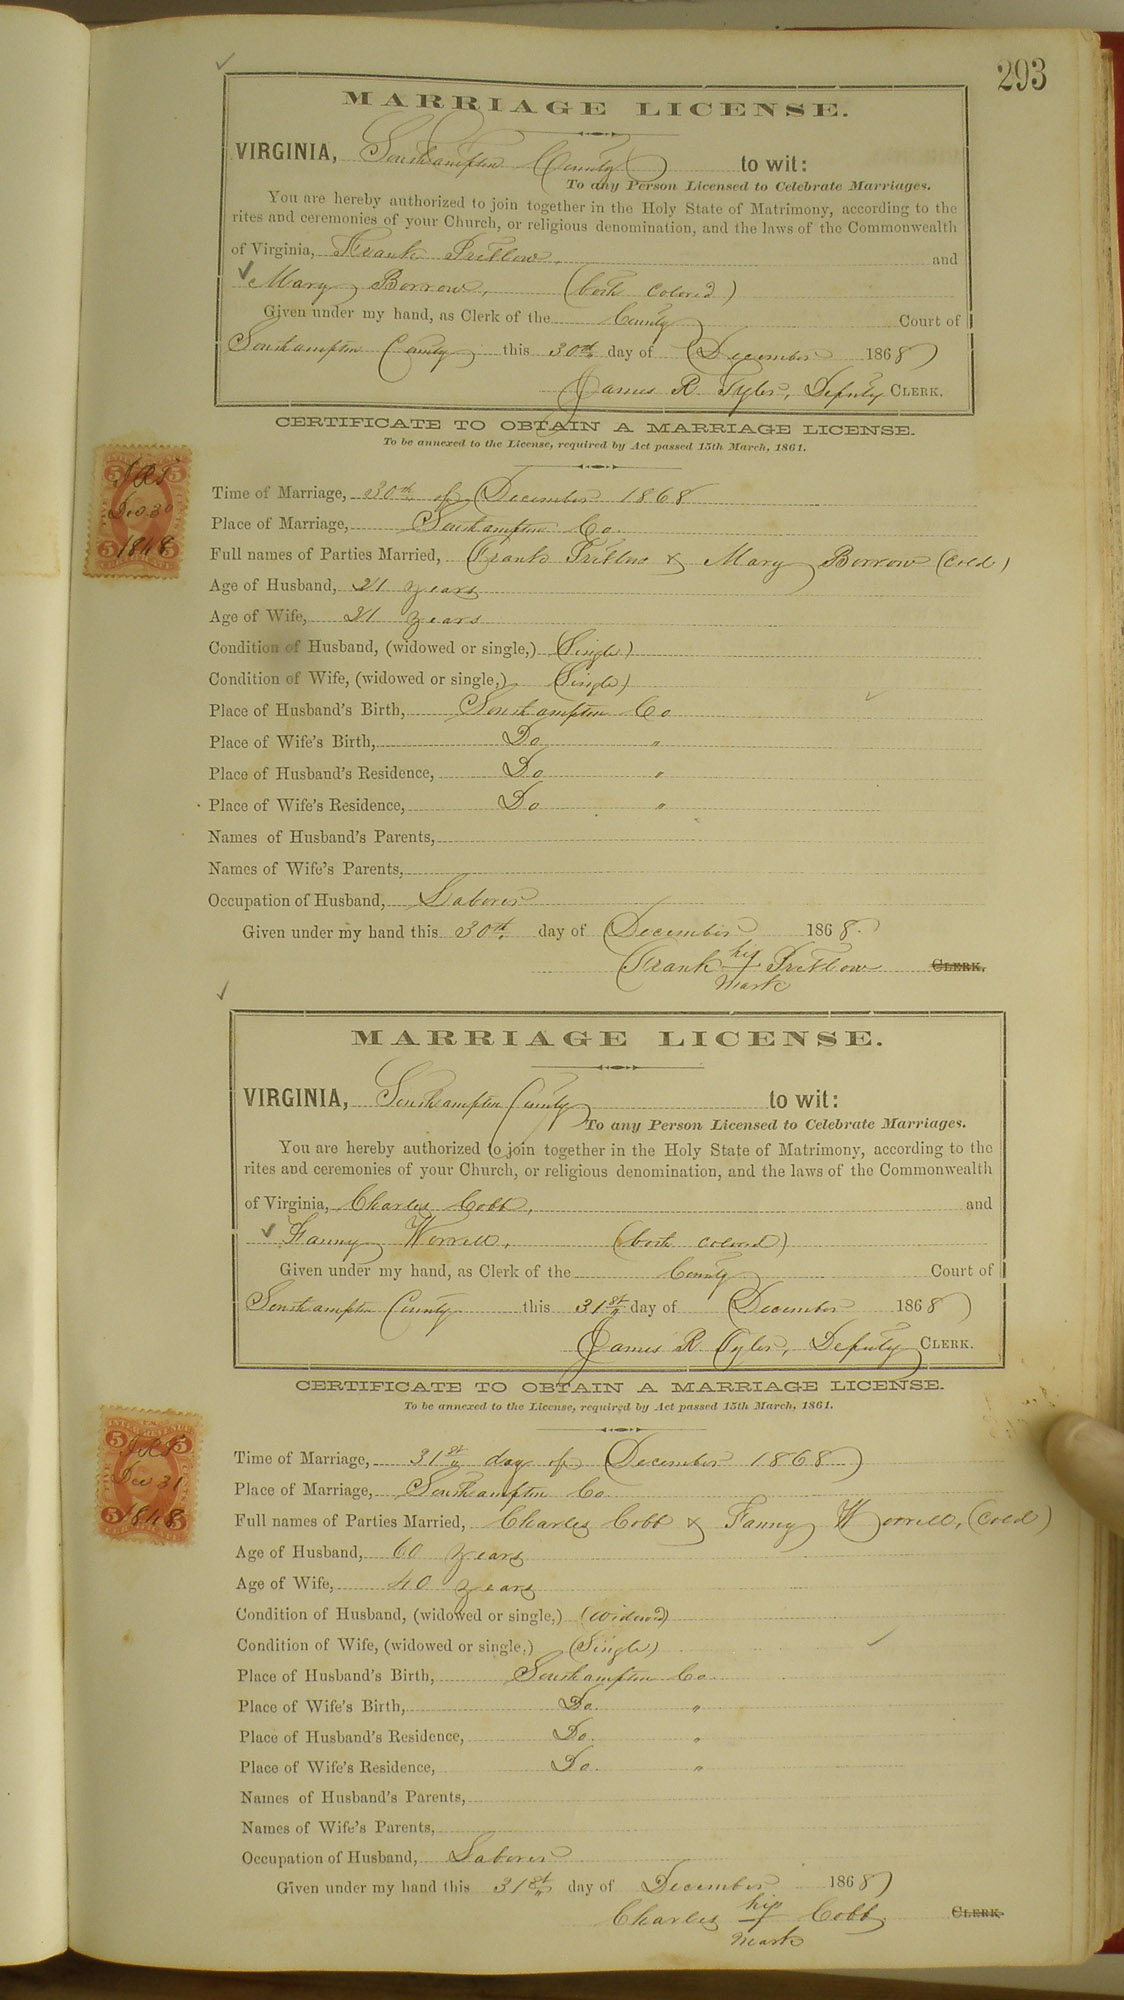 293
MARRIAGE LICENSE.
VIRGINIA, Southampton County to wit:
To any Person Licensed to Celebrate Marriages.
You are hereby authorized to join together in the Holy State of Matrimony, according to the
rites and ceremonies of your Church, or religious denomination, and the laws of the Commonwealth
of Virginia, Frank Pretlow, and
Mary Borrow, (both colored)
Given under my hand, as Clerk of the County Court of
Southampton County this 30th day of December 1868
James R. Tyler, Deputy CLERK.
CERTIFICATE TO OBTAIN A MARRIAGE LICENSE.
To be annexed to the License, required by Act passed 15th March, 1861.
5 5
Dec 30
1868
5 5
Time of Marriage, 30th of December 1868
Place of Marriage, Southampton Co.
Full names of Parties Married, Frank Pretlow & Mary Borrow (Cold)
Age of Husband, 21 years
Age of Wife, 21 years
Condition of Husband, (widowed or single,) (Single)
Condition of Wife, (widowed or single,) (Single)
Place of Husband's Birth, Southampton Co
Place of Wife's Birth, Do "
Place of Husband's Residence, Do "
Place of Wife's Residence, Do "
Names of Husband's Parents,
Names of Wife's Parents,
Occupation of Husband, Laborer
Given under my hand this 30th day of December 1868.
Frank his Pretlow CLERK.
mark
MARRIAGE LICENSE.
VIRGINIA, Southampton County to wit:
To any Person Licensed to Celebrate Marriages.
You are hereby authorized to join together in the Holy State of Matrimony, according to the
rites and ceremonies of your Church, or religious denomination, and the laws of the Commonwealth
of Virginia, Charles Cobb, and
Fanny Worrell, (both colored)
Given under my hand, as Clerk of the County Court of
Southampton County this 31st day of December 1868
James R. Tyler, Deputy CLERK.
CERTIFICATE TO OBTAIN A MARRIAGE LICENSE.
To be annexed to the License, required by Act passed 15th March, 1861.
INTER. REVENUE
5 5
Dec 31
1868
5 5
Time of Marriage, 31st day of December 1868
Place of Marriage, Southampton Co.
Full names of Parties Married, Charles Cobb & Fanny Worrell, (Cold)
Age of Husband, 60 years
Age of Wife, 40 years
Condition of Husband, (widowed or single,) (widowed)
Condition of Wife, (widowed or single,) (Single)
Place of Husband's Birth, Southampton Co.
Place of Wife's Birth, Do. "
Place of Husband's Residence, Do. "
Place of Wife's Residence, Do. "
Names of Husband's Parents,
Names of Wife's Parents,
Occupation of Husband, Laborer
Given under my hand this 31st day of December 1868
Charles his Cobb CLERK.
mark